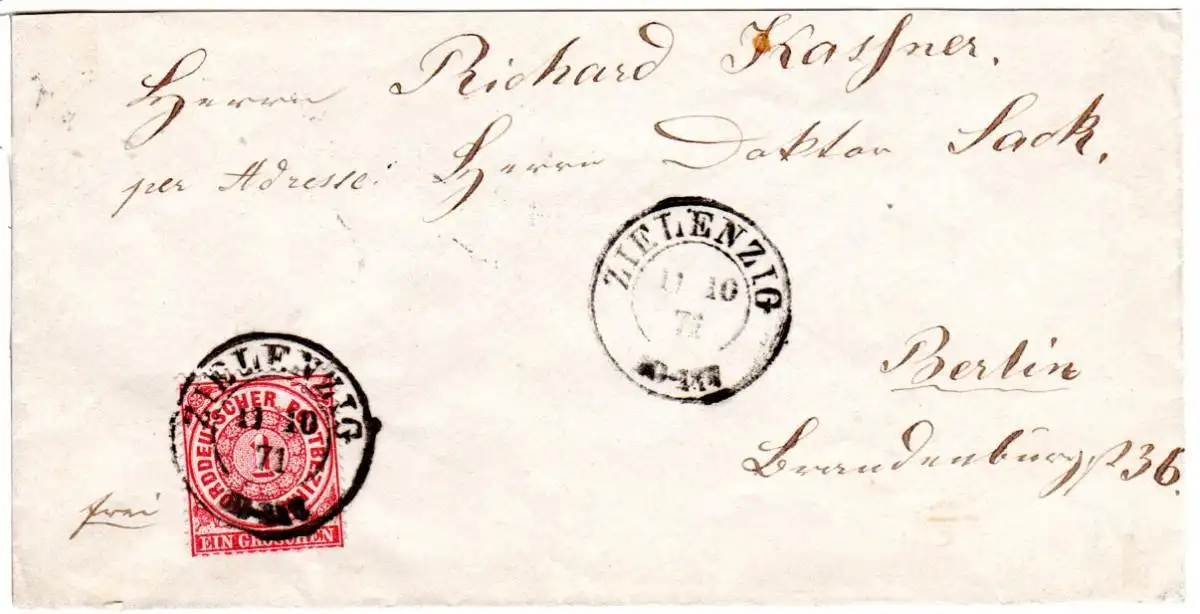 Herrn Richard Kassner.
per Adresse: Herrn Doktor Sack.
ZIELENZIG
11 10
71
Berlin
Brandenburgst 36.
frei
ZIELENZIG
11 10
71
NORDDEUTSCHER POSTBEZIRK
1
EIN GROSCHEN